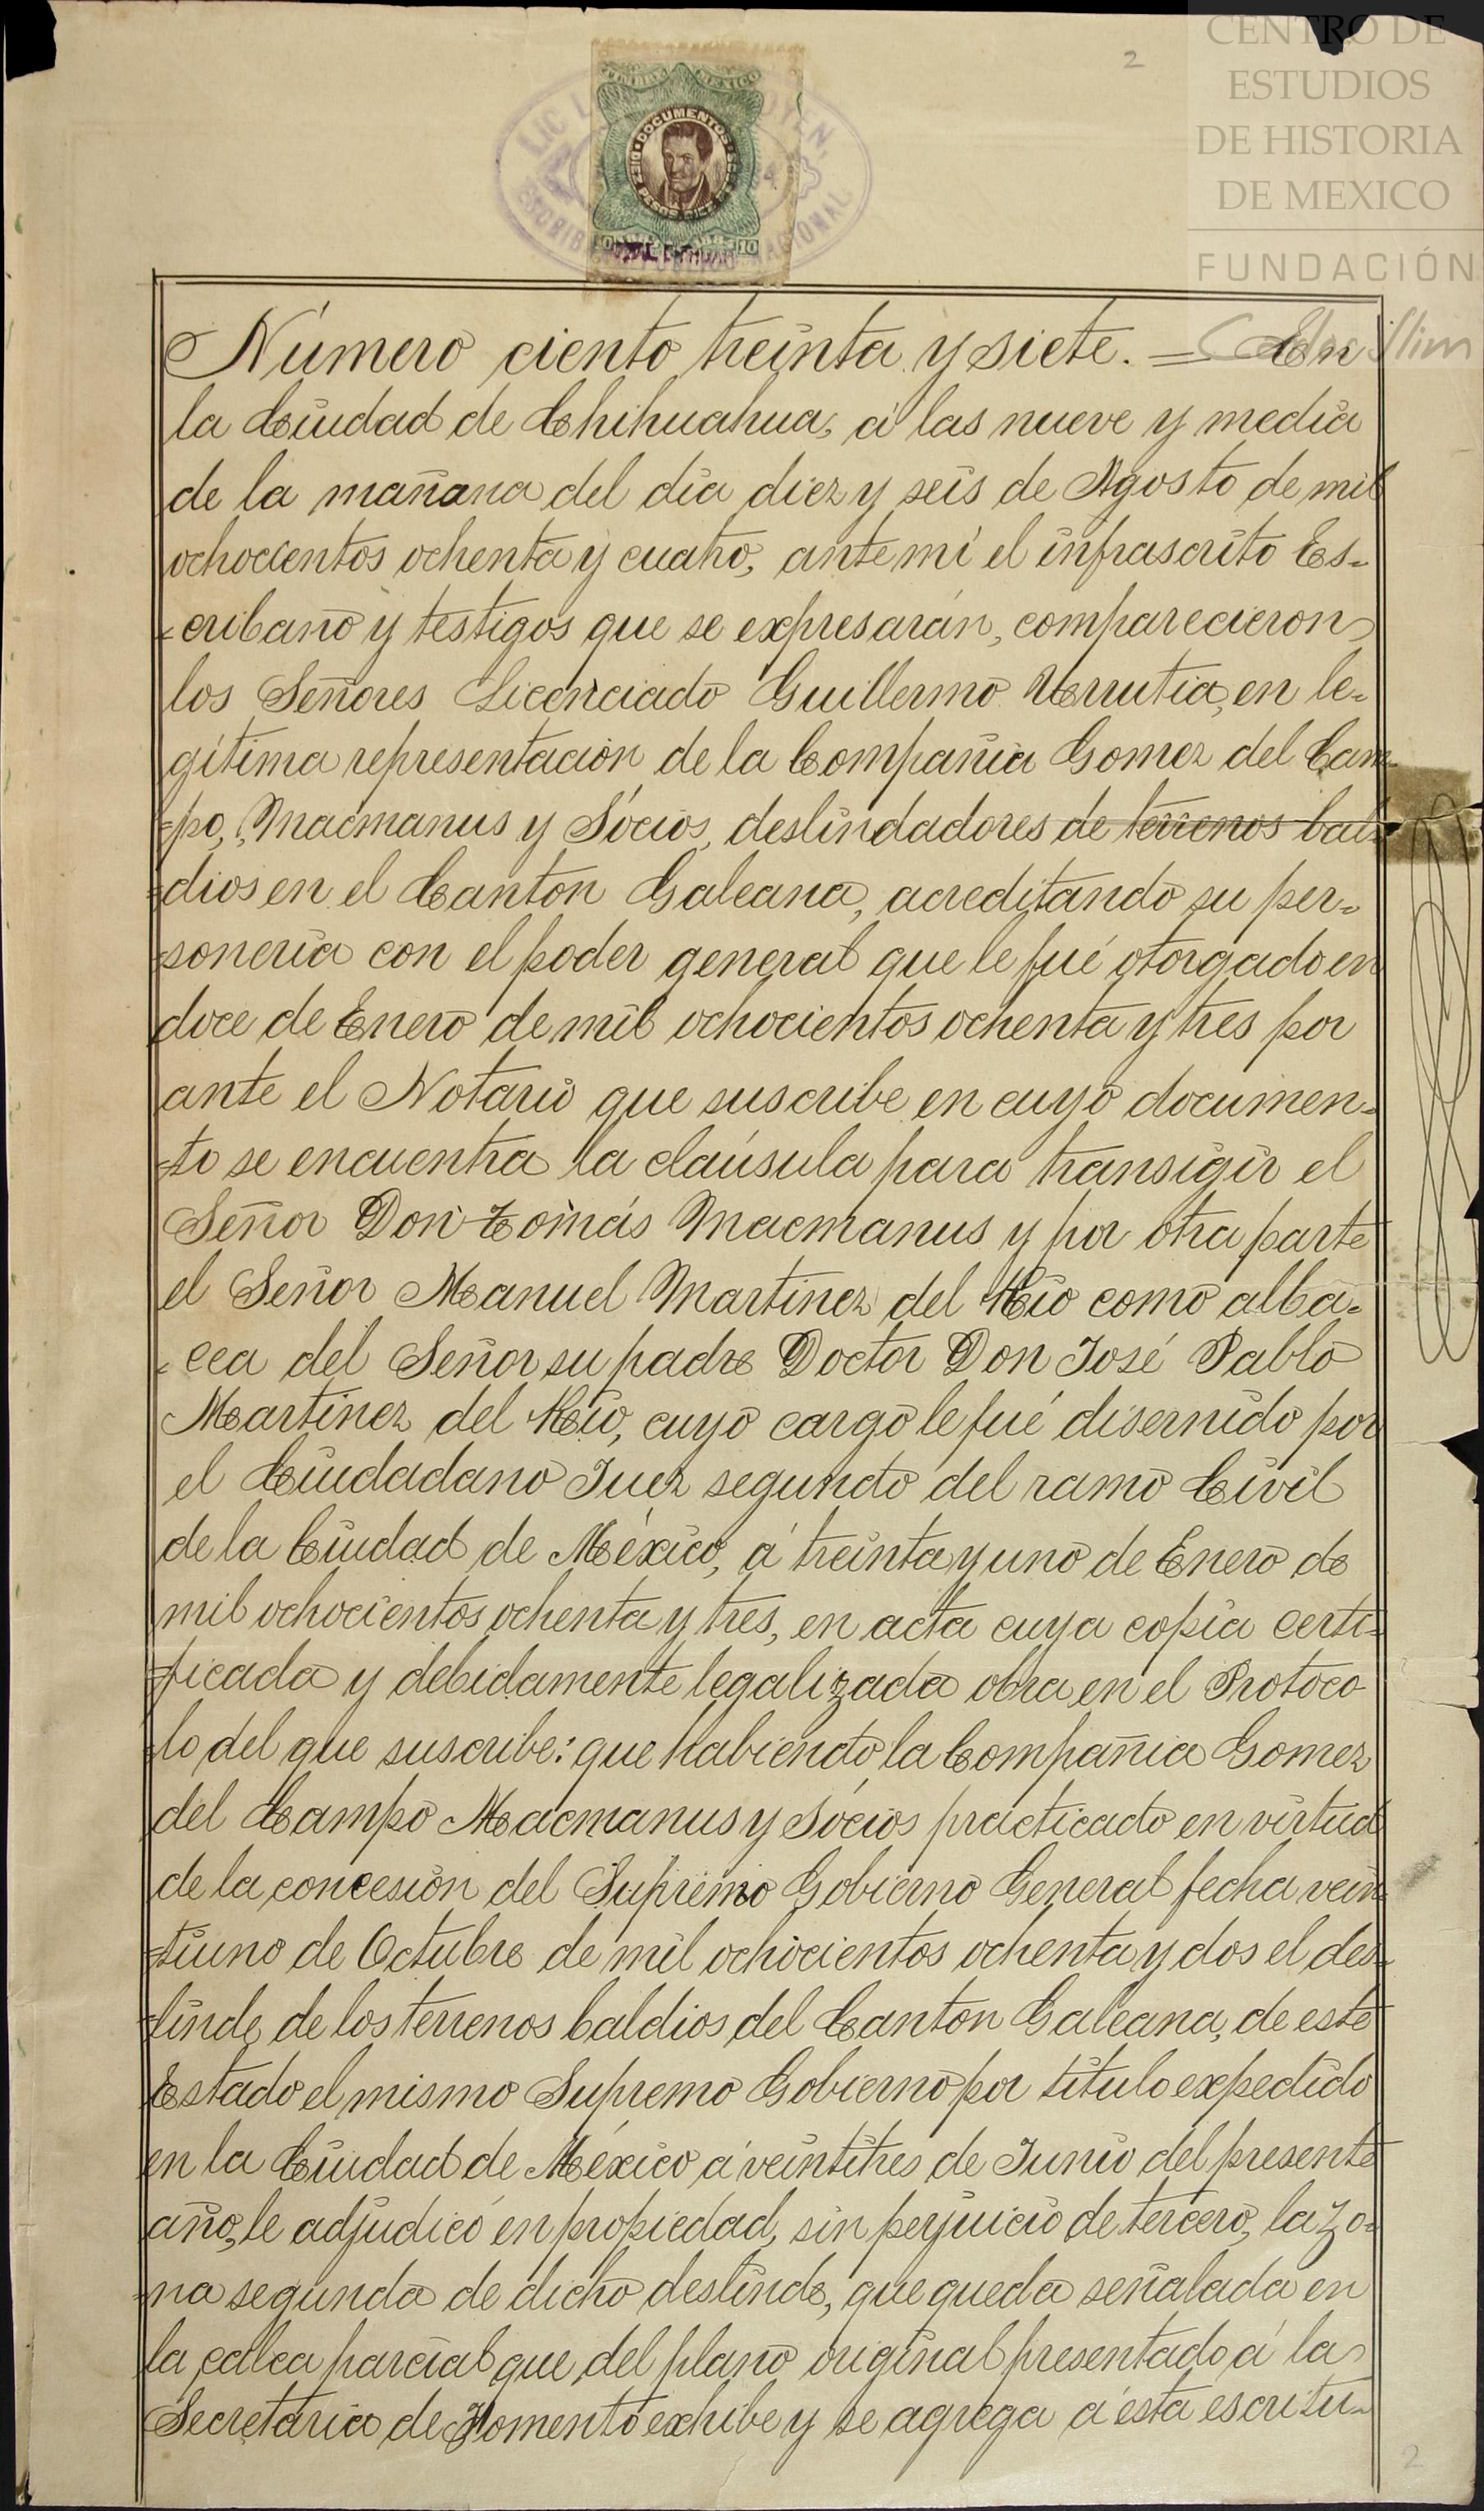 2
CENTRO DE
ESTUDIOS
DE HISTORIA
DE MEXICO
FUNDACIÓN
Carlos Slim
MEXICO
DOCUMENTOS
DIEZ PESOS
10 10
LIC
NACIONAL
Número ciento treinta y siete. = En
la Ciudad de Chihuahua, á las nueve y media
de la mañana del dia diez y seis de Agosto de mil
ochocientos ochenta y cuatro, ante mí el infrascrito Es=
=cribano y testigos que se expresarán, comparecieron
los Señores Licenciado Guillermo Urrutia, en le=
gítima representación de la Compañia Gomez del Cam=
=po, Macmanus y Sócios, deslindadores de terrenos bal=
=dios en el Canton Galeana, acreditando su per=
=soneria con el poder general que le fué otorgado en
doce de Enero de mil ochocientos ochenta y tres por
ante el Notario que suscribe en cuyo documen=
=to se encuentra la claúsula para transigir el
Señor Don Tomás Macmanus y por otra parte
el Señor Manuel Martinez del Rio como alba=
=cea del Señor su padre Doctor Don José Pablo
Martinez del Rio, cuyo cargo le fué disernido por
el Ciudadano Juez segundo del ramo Civil
de la Ciudad de México, á treinta y uno de Enero de
mil ochocientos ochenta y tres, en acta cuya copia certi=
=ficada y debidamente legalizada obra en el Protoco
=lo del que suscribe: que habiendo la Compañia Gomez
del Campo Macmanus y Sócios practicado en virtud
de la concesion del Supremo Gobierno General fecha vein=
=tiuno de Octubre de mil ochocientos ochenta y dos el des=
=linde de los terrenos baldios del Canton Galeana, de este
Estado el mismo Supremo Gobierno por título expedido
en la Ciudad de México á veintitres de Junio del presente
año, le adjudicó en propiedad, sin perjuicio de tercero, la zo=
=na segunda de dicho deslinde, que queda señalada en
la calca parcial que del plano original presentado á la
Secretaria de Fomento exhibe y se agrega á esta escritu=
2